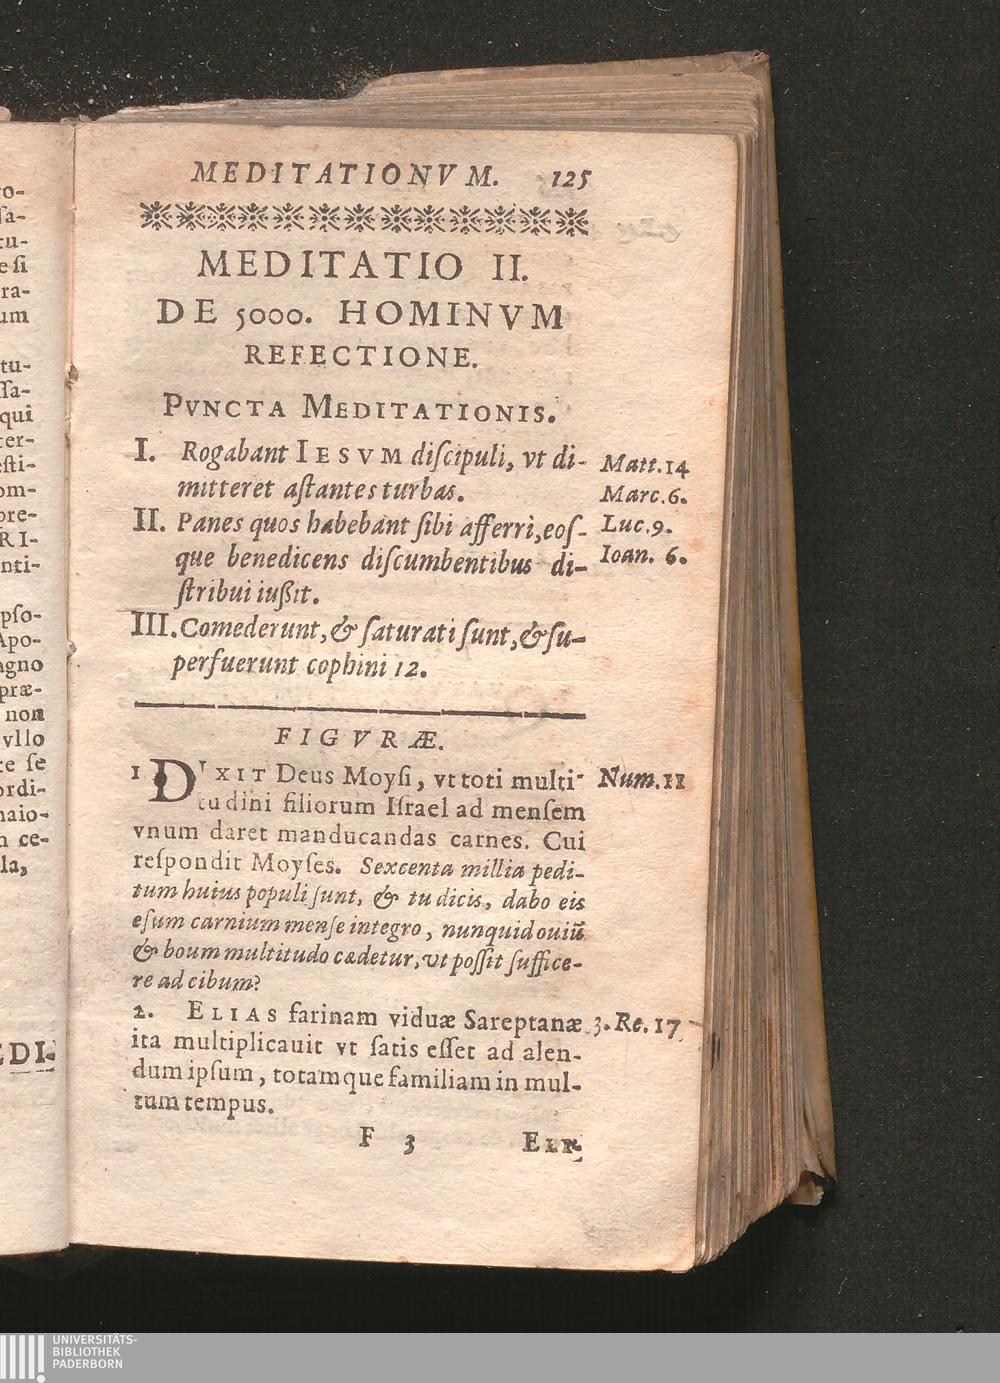 MEDITATIONVM. 125
MEDITATIO II.
DE 5000. HOMINVM
REFECTIONE.
PVNCTA MEDITATIONIS.
I. Rogabant IESVM diſcipuli, vt di-
mitteret aſtantes turbas.
II. Panes quos habebant ſibi afferri, eoſ-
que benedicens diſcumbentibus di-
ſtribui iußit.
III. Comederunt, & ſaturati ſunt, & ſu-
perfuerunt cophini 12.
Matt. 14
Marc. 6.
Luc. 9.
Ioan. 6.
FIGVRÆ.
1 DIXIT Deus Moyſi, vt toti multi-
tudini filiorum Iſrael ad menſem
vnum daret manducandas carnes. Cui
reſpondit Moyſes. Sexcenta millia pedi-
tum huius populi ſunt, & tu dicis, dabo eis
eſum carnium menſe integro, nunquid ouiū
& boum multitudo cædetur, vt poſſit ſuffice-
re ad cibum?
Num. 11
2. ELIAS farinam viduæ Sareptanæ
ita multiplicauit vt ſatis eſſet ad alen-
dum ipſum, totamque familiam in mul-
tum tempus.
3. Re. 17
F 3
o-
ſa-
tu-
e ſi
ra-
um
tu-
ſſa-
qui
ter-
eſti-
om-
pre-
RI-
nti-
pſo-
Apo-
agno
præ-
non
vllo
te ſe
ordi-
naio-
n ce-
la,
EDI-
UNIVERSITÄTS-
BIBLIOTHEK
PADERBORN